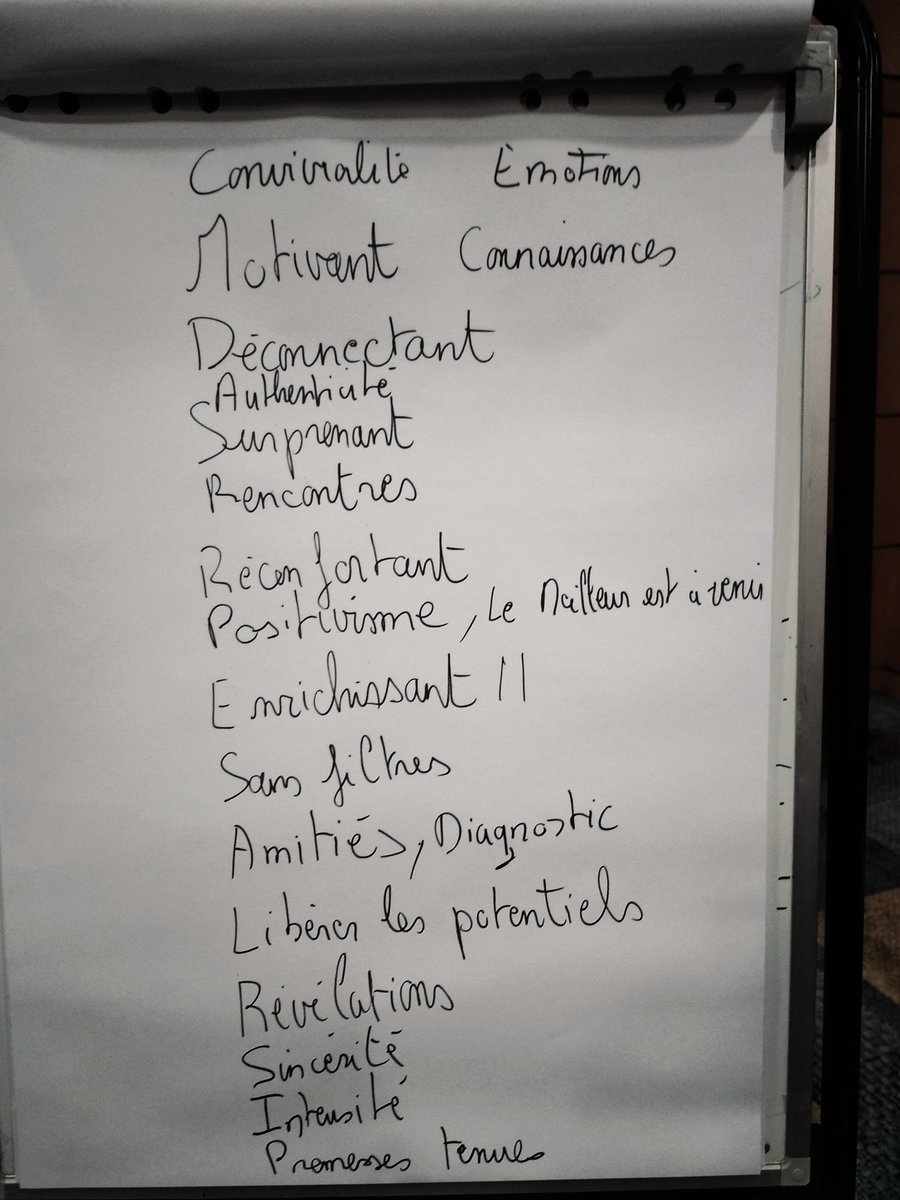 Convivialité Émotions
Motivant Connaissances
Déconnectant
Authenticité
Surprenant
Rencontres
Réconfortant
Positivisme, Le Meilleur est à venir
Enrichissant !!
Sans filtres
Amitiés, Diagnostic
Libérer les potentiels
Révélations
Sincérité
Intensité
Promesses tenues